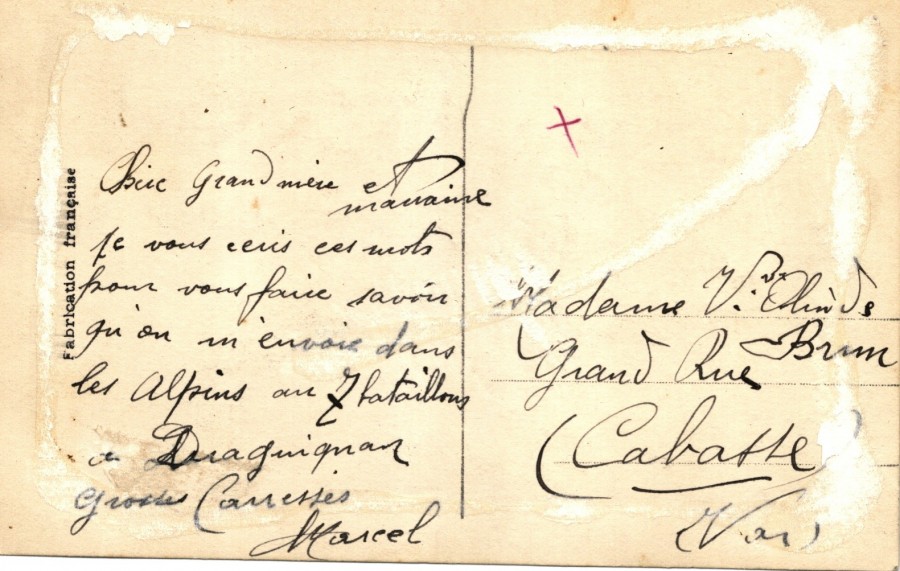 Fabrication française
Chère Grand mère et
marraine
je vous ecris ces mots
pour vous faire savoir
qu'on m'envoie dans
les Alpins au 7 bataillons
a Draguignan
Grosses Carresses
Marcel
Madame V.ve Elinde
Brun
Grand Rue
(Cabasse)
(Var)